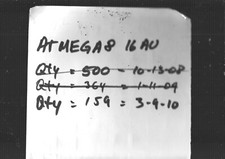 ATMEGA8 16AU
Qty = 500 - 10-13-08
Qty = 364 - 1-11-09
Qty = 159 = 3-9-10